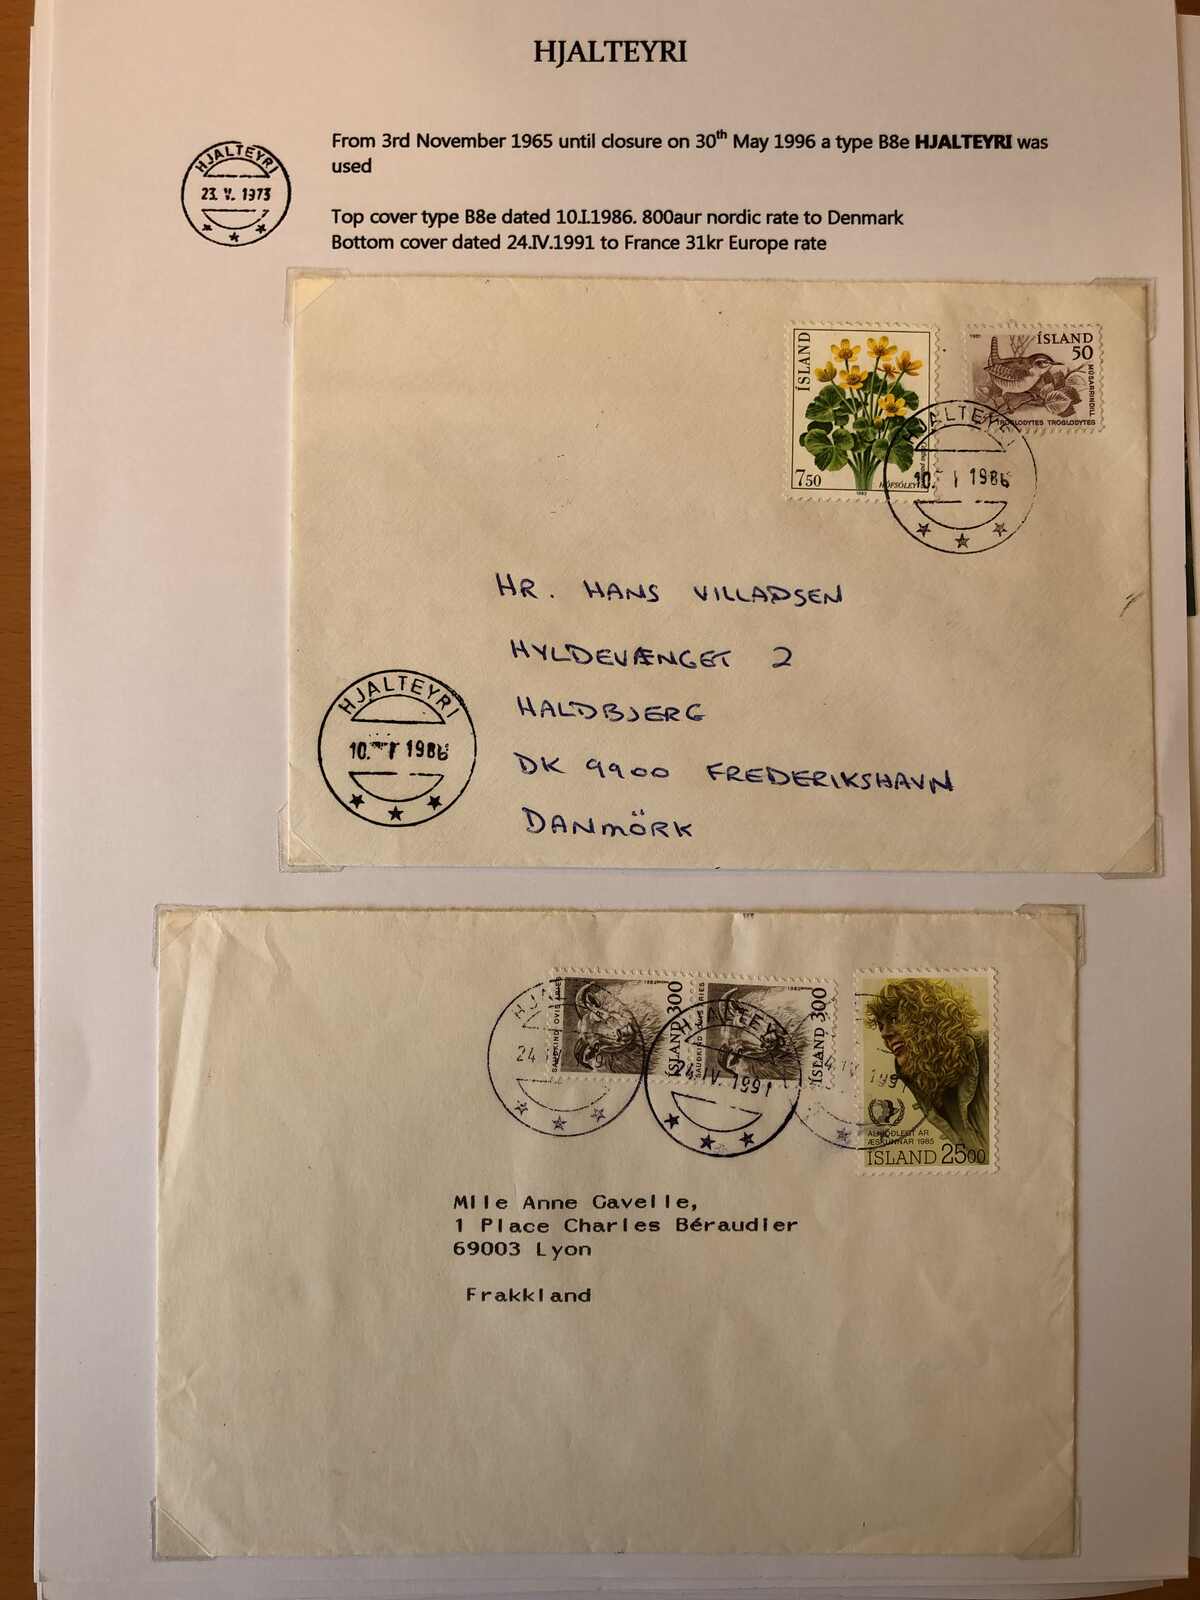 HJALTEYRI
From 3rd November 1965 until closure on 30th May 1996 a type B8e HJALTEYRI was
used
HJALTEYRI
23. V. 1973
Top cover type B8e dated 10.I.1986. 800aur nordic rate to Denmark
Bottom cover dated 24.IV.1991 to France 31kr Europe rate
ÍSLAND
750
HÓFSÓLEY
1982
1981
ÍSLAND
50
MÚSARRINDILL
TROGLODYTES TROGLODYTES
HJALTEYRI
10. I 1986
HR. HANS VILLADSEN
HYLDEVÆNGET 2
HALDBJERG
DK 9900 FREDERIKSHAVN
DANMÖRK
HJALTEYRI
10. I 1986
SAUÐKIND OVIS ARIES
1982
ÍSLAND 300
SAUÐKIND OVIS ARIES
1982
ÍSLAND 300
HJA
24 IV 19
HJALTEYRI
24. IV. 1991
4 IV 1991
ALÞJÓÐLEGT ÁR
ÆSKUNNAR 1985
ÍSLAND 2500
Mlle Anne Gavelle,
1 Place Charles Béraudier
69003 Lyon
Frakkland